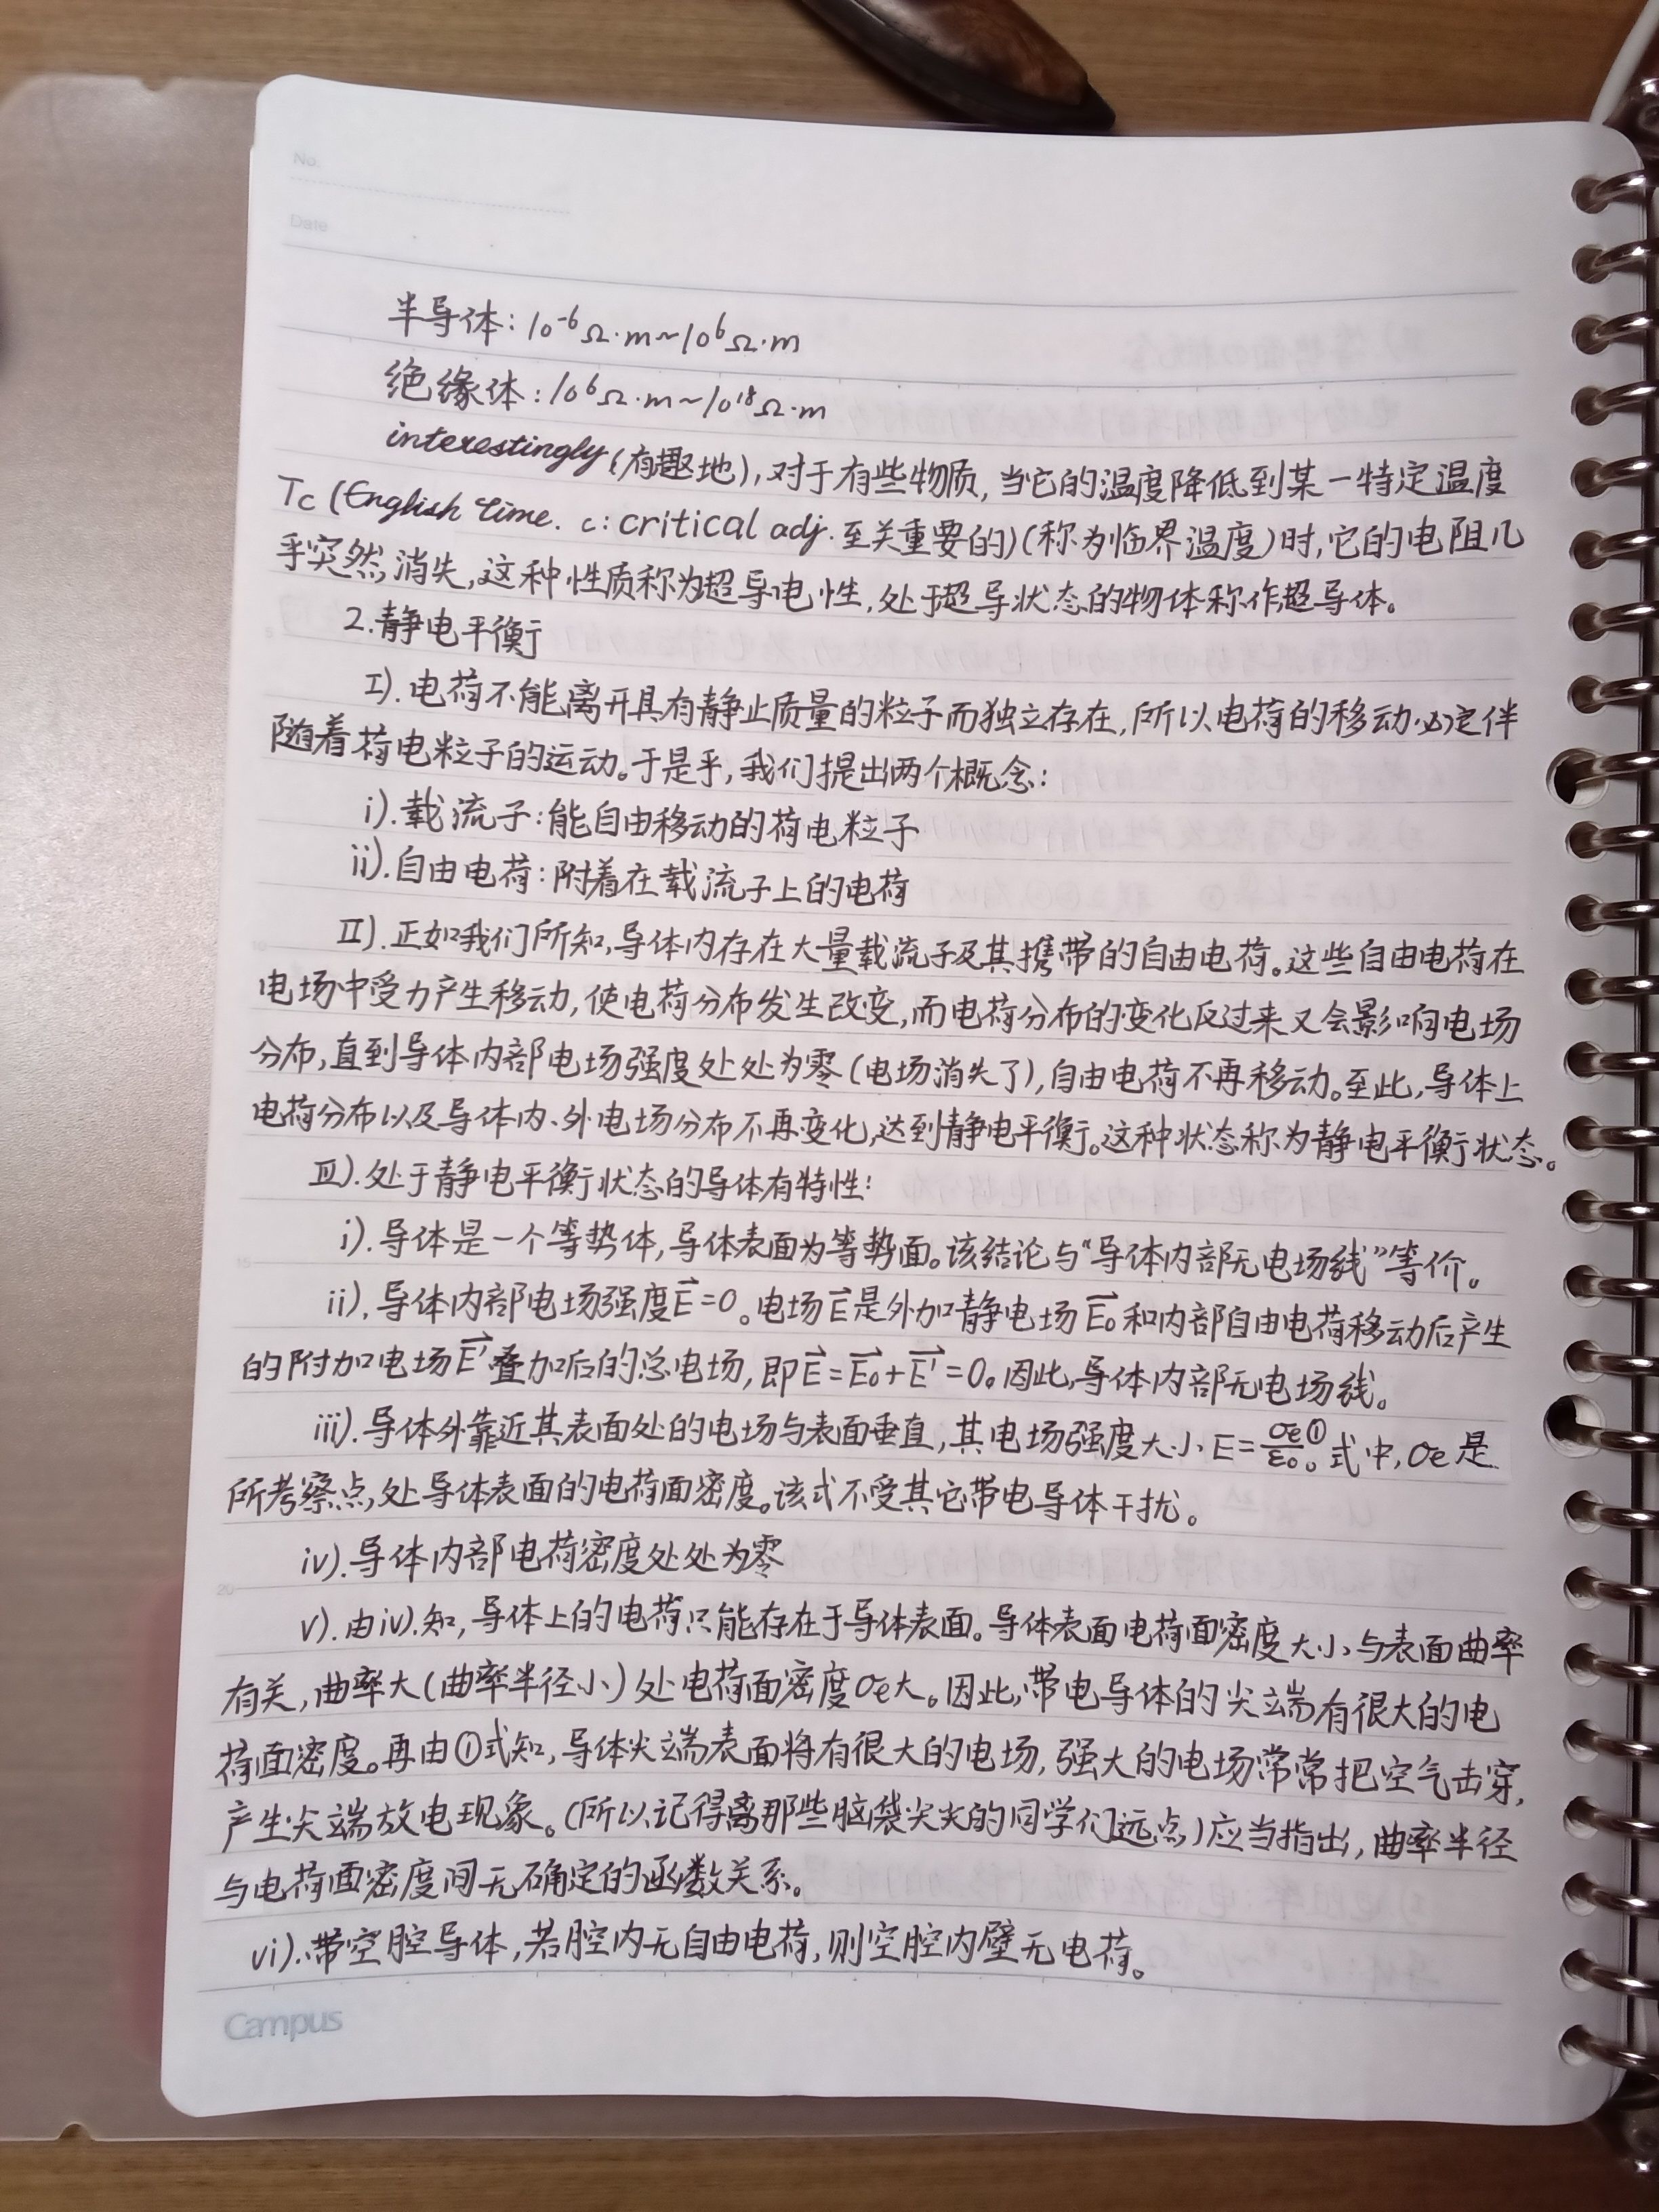 No.
Date
半导体:10⁻⁶Ω·m~10⁶Ω·m
绝缘体:10⁶Ω·m~10¹⁸Ω·m
interestingly(有趣地),对于有些物质,当它的温度降低到某一特定温度
Tc(English time. c:critical adj.至关重要的)(称为临界温度)时,它的电阻几
乎突然消失,这种性质称为超导电性,处于超导状态的物体称作超导体。
2.静电平衡
I).电荷不能离开具有静止质量的粒子而独立存在,所以电荷的移动必定伴
随着荷电粒子的运动。于是乎,我们提出两个概念:
i).载流子:能自由移动的荷电粒子
ii).自由电荷:附着在载流子上的电荷
II).正如我们所知,导体内存在大量载流子及其携带的自由电荷。这些自由电荷在
电场中受力产生移动,使电荷分布发生改变,而电荷分布的变化反过来又会影响电场
分布,直到导体内部电场强度处处为零(电场消失了),自由电荷不再移动。至此,导体上
电荷分布以及导体内、外电场分布不再变化,达到静电平衡。这种状态称为静电平衡状态。
III).处于静电平衡状态的导体有特性:
i).导体是一个等势体,导体表面为等势面。该结论与“导体内部无电场线”等价。
ii).导体内部电场强度E⃗=0。电场E⃗是外加静电场E⃗₀和内部自由电荷移动后产生
的附加电场E⃗'叠加后的总电场,即E⃗=E⃗₀+E⃗'=0。因此,导体内部无电场线。
iii).导体外靠近其表面处的电场与表面垂直,其电场强度大小E=σe/ε₀①。式中,σe是
所考察点,处导体表面的电荷面密度。该式不受其它带电导体干扰。
iv).导体内部电荷密度处处为零
v).由iv).知,导体上的电荷只能存在于导体表面。导体表面电荷面密度大小与表面曲率
有关,曲率大(曲率半径小)处电荷面密度σe大。因此,带电导体的尖端有很大的电
荷面密度。再由①式知,导体尖端表面将有很大的电场,强大的电场常常把空气击穿,
产生尖端放电现象。(所以记得离那些脑袋尖尖的同学们远点)应当指出,曲率半径
与电荷面密度间无确定的函数关系。
vi).带空腔导体,若腔内无自由电荷,则空腔内壁无电荷。
Campus